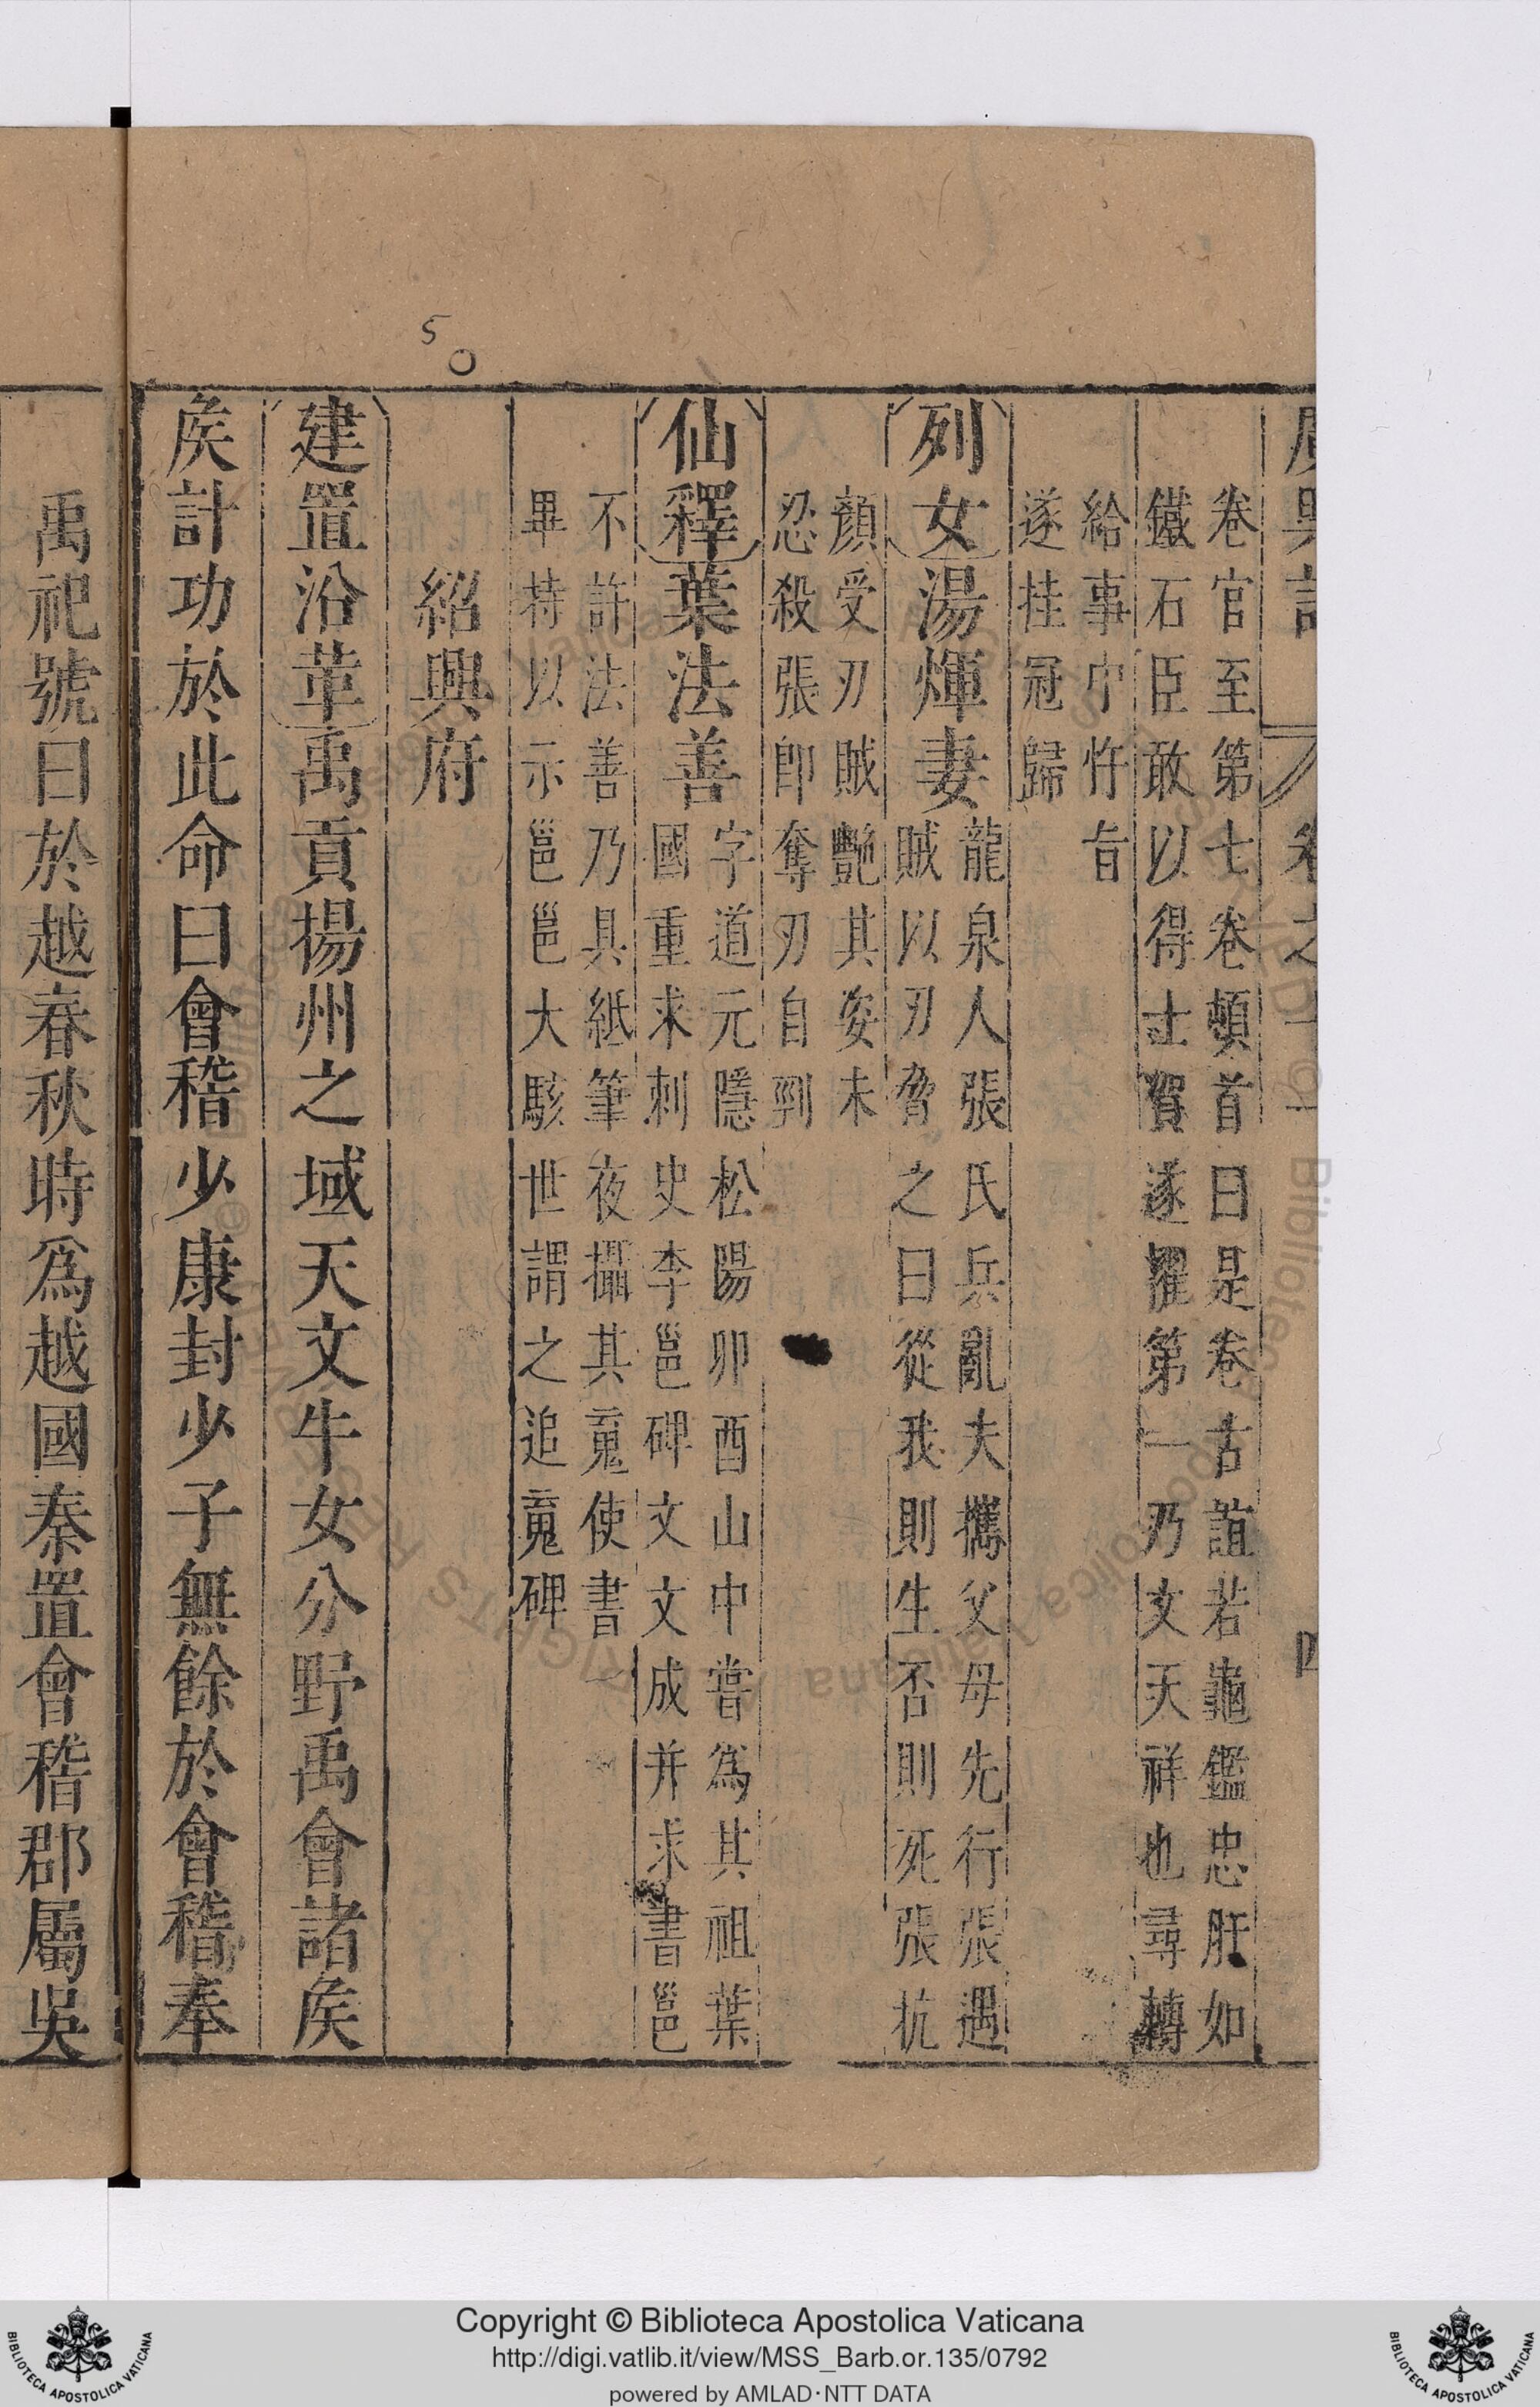 廣輿記 卷之 四
卷官至第七卷頓首曰是卷古誼若龜鑑忠肝如
鐵石臣敢以得士賀遂擢第一乃文天祥也尋轉
給事中忤旨
遂挂冠歸
列女湯煇妻
龍泉人張氏兵亂夫攜父母先行張遇
賊以刃脅之曰從我則生否則死張抗
顏受刃賊艷其姿未
忍殺張卽奪刃自剄
仙釋葉法善
字道元隱松陽卯酉山中嘗爲其祖葉
國重求刺史李邕碑文文成并求書邕
不許法善乃具紙筆夜攝其䰟使書
畢持以示邕邕大駭世謂之追䰟碑
5
紹興府
建置沿革禹貢揚州之域天文牛女分野禹會諸矦
矦計功於此命曰會稽少康封少子無餘於會稽奉
禹祀號曰於越春秋時爲越國秦置會稽郡屬吳
Copyright © Biblioteca Apostolica Vaticana
http://digi.vatlib.it/view/MSS_Barb.or.135/0792
powered by AMLAD·NTT DATA
BIBLIOTECA APOSTOLICA VATICANA
BIBLIOTECA APOSTOLICA VATICANA